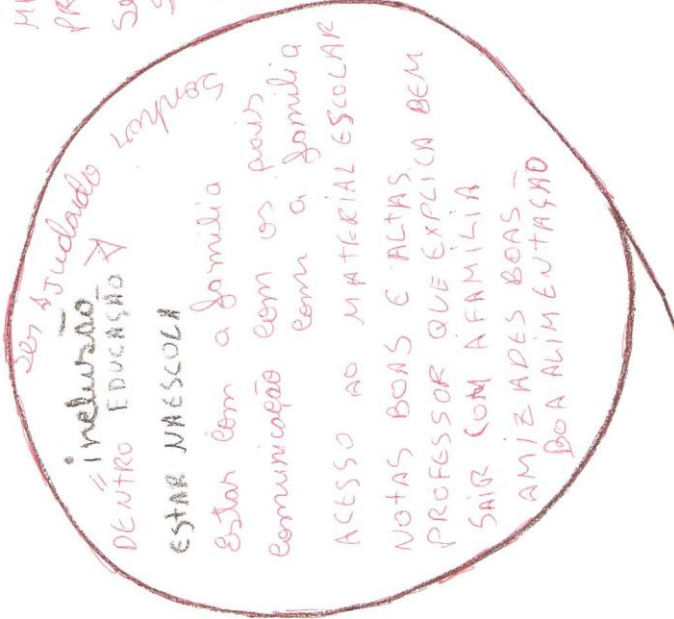 Ser AJudado
inclusão
DENTRO = EDUCAÇÃO
EStAR NA ESCOLA
Estar com a família
comunicação com os pais
com a família
ACESSO AO MATERIAL ESCOLAR
NOtAS BOAS E ALtAS
PROFESSOR QUE EXPLICA BEM
SAIR COM A FAMÍLIA
AMIZADES BOAS -
BOA ALIMENTAÇÃO